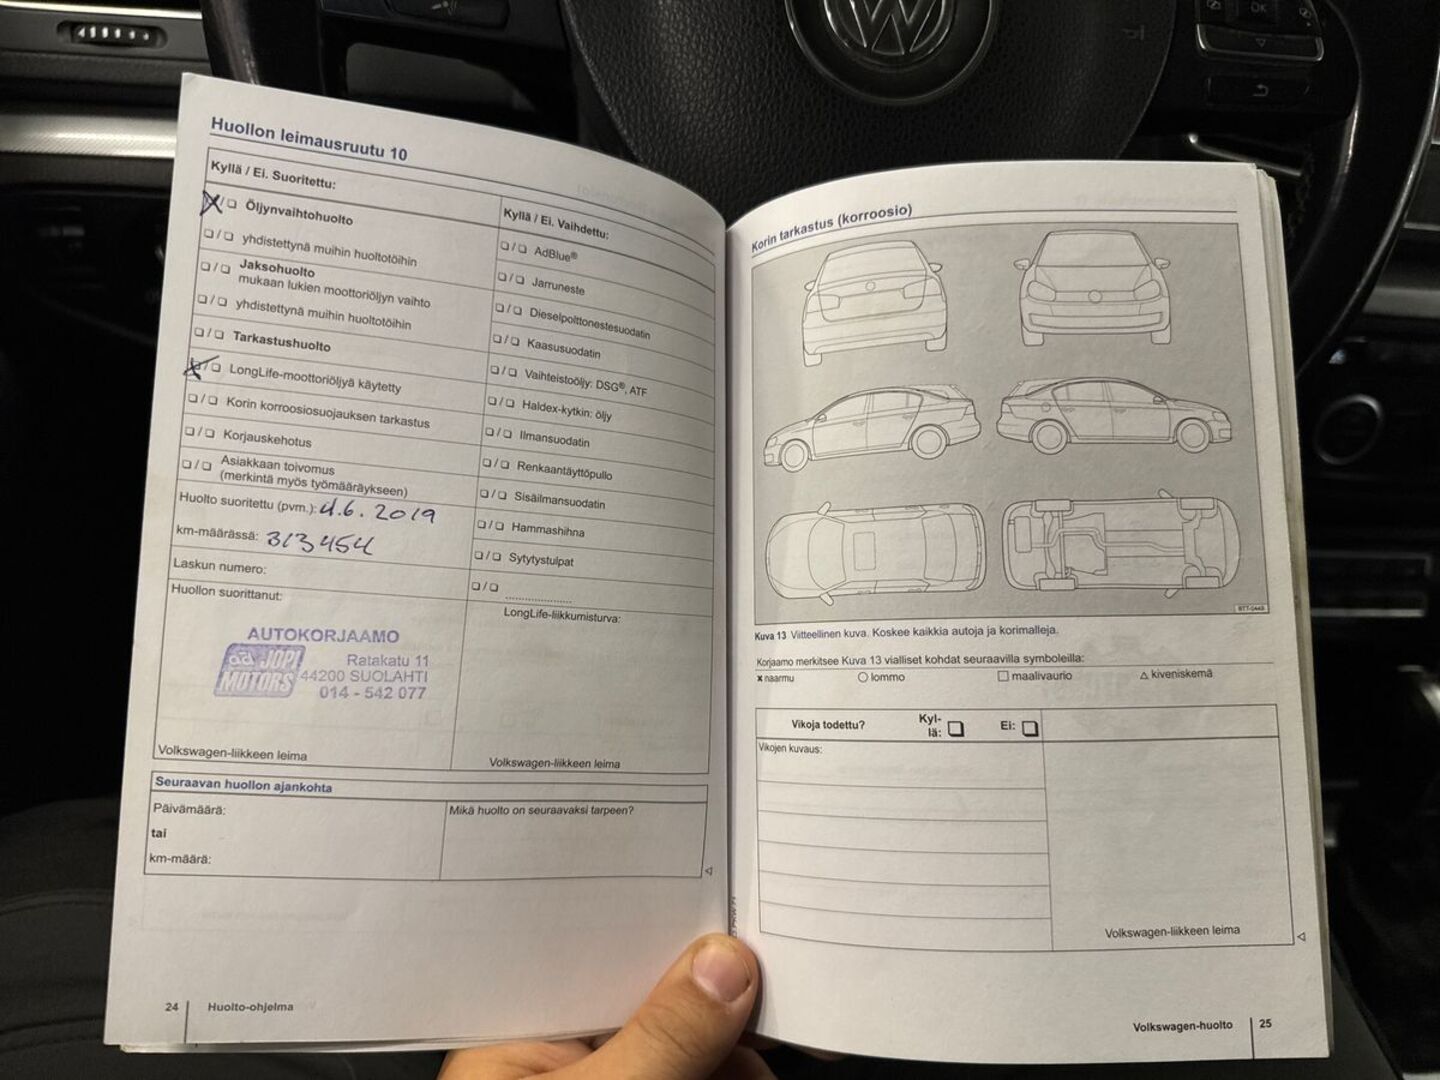 Huollon leimausruutu 10
Kyllä / Ei. Suoritettu:
Öljynvaihtohuolto
yhdistettynä muihin huoltotöihin
Jaksohuolto
mukaan lukien moottoriöljyn vaihto
yhdistettynä muihin huoltotöihin
Tarkastushuolto
LongLife-moottoriöljyä käytetty
Korin korroosiosuojauksen tarkastus
Korjauskehotus
Asiakkaan toivomus
(merkintä myös työmääräykseen)
Huolto suoritettu (pvm.): 4.6.2019
km-määrässä: 313454
Laskun numero:
Huollon suorittanut:
AUTOKORJAAMO
ad JOPI MOTORS
Ratakatu 11
44200 SUOLAHTI
014 - 542 077
Volkswagen-liikkeen leima
Kyllä / Ei. Vaihdettu:
AdBlue®
Jarruneste
Dieselpolttonestesuodatin
Kaasusuodatin
Vaihteistoöljy: DSG®, ATF
Haldex-kytkin: öljy
Ilmansuodatin
Renkaantäyttöpullo
Sisäilmansuodatin
Hammashihna
Sytytystulpat
LongLife-liikkumisturva:
Volkswagen-liikkeen leima
Seuraavan huollon ajankohta
Päivämäärä:
tai
km-määrä:
Mikä huolto on seuraavaksi tarpeen?
24 Huolto-ohjelma
Korin tarkastus (korroosio)
BTT-0449
Kuva 13 Viitteellinen kuva. Koskee kaikkia autoja ja korimalleja.
Korjaamo merkitsee Kuva 13 vialliset kohdat seuraavilla symboleilla:
x naarmu
lommo
maalivaurio
kiveniskemä
Vikoja todettu?
Kyl-
lä:
Ei:
Vikojen kuvaus:
Volkswagen-liikkeen leima
Volkswagen-huolto 25
OK